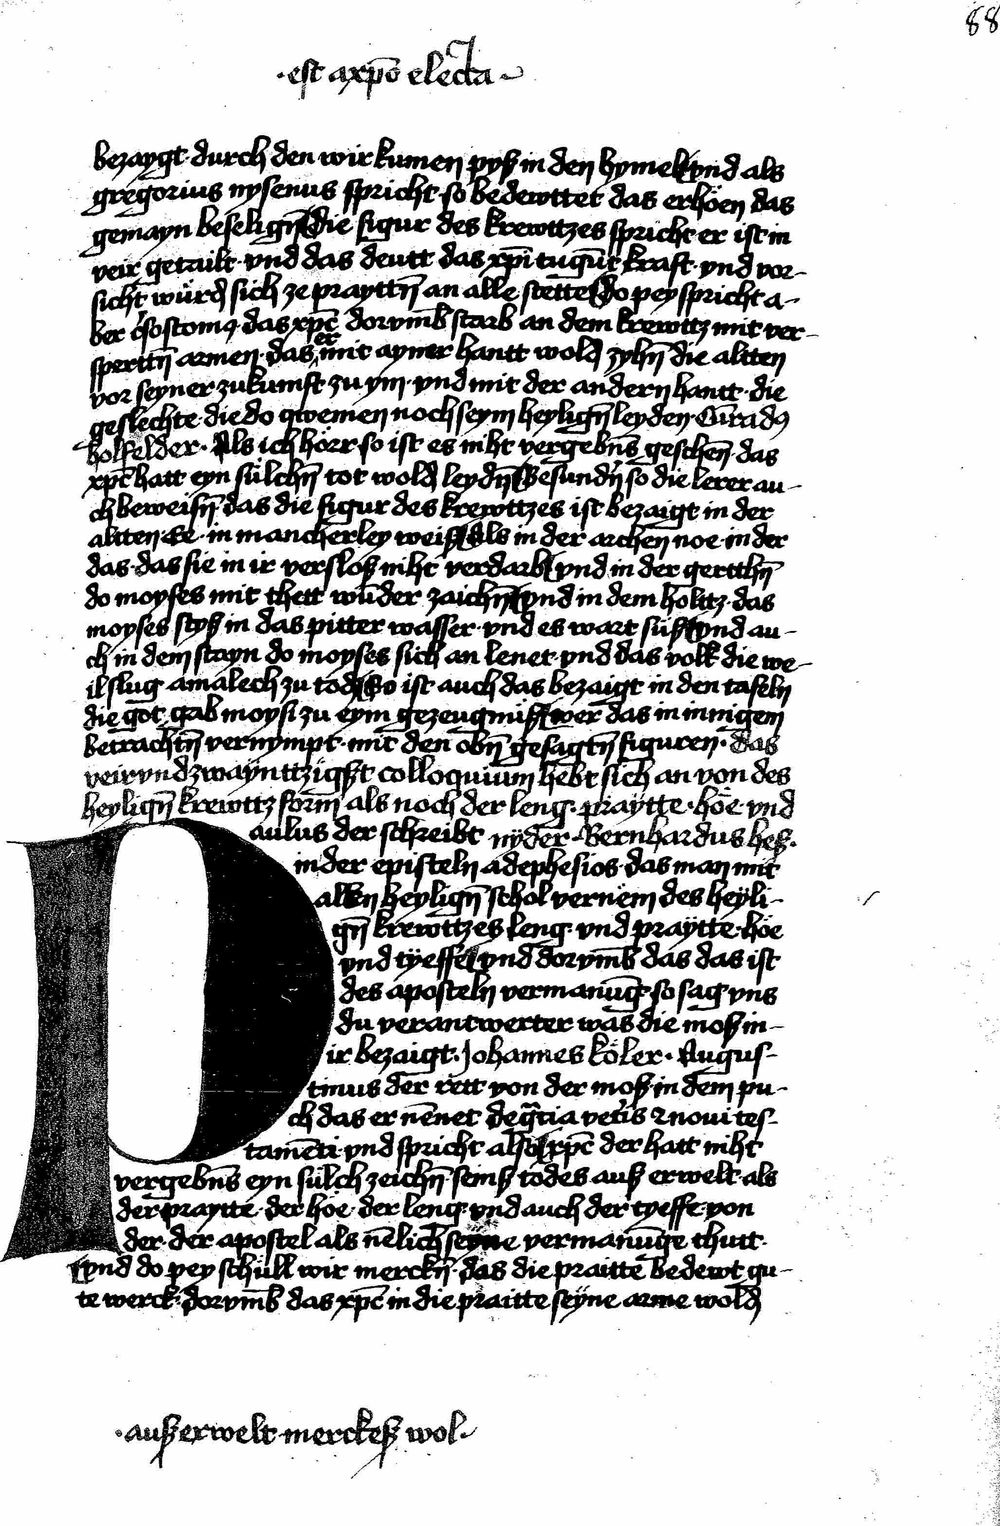 88
·est a xp̄o electa·
bezaygt· durch den wir kumen pyß in den hymel vnd als
gregorius nysenus spricht· so bedewttet das erhöen das
gemayn beseligñ die figur des krewttzes spricht er ist in
veir getailt· vnd das deutt das xp̄i tugūt kraft· vnd vor-
sicht würd sich ze prayttñ an alle stette So pey spricht a-
ber c̓sostomꝰ das xp̄c dorvmb̄ starb an dem krewttz mit ver-
sperttñ armen· das er mit ayner hantt wold zyhñ die altten
vor seyner zukumft zu ym· vnd mit der andern hantt· die
geslechte· die do qwemen noch seym heyligñ leyden· Cūradꝰ
holfelder· Als ich höer so ist es niht vergebn̄s gescheñ das
xp̄c hatt eyn sülchñ tot wold leydñ Besundn̄ so die lerer au-
ch beweisñ das die figur des krewttzes ist bezaigt in der
altten Ee· in mancherley weiß Als in der archen noe· in der
das· das sie in ir versloß niht verdarb vnd in der gertthñ
do moyses mit thett wūder zaichñ vnd in dem holttz· das
moyses styß in das pitter wasser· vnd es wart süß vnd au-
ch in dem stayn do moyses sich an lenet· vnd das volk die we-
il slug amalech zu tod So ist auch das bezaigt in den tafeln
die got gab moysi zu eym gezeugniß wer das in innigem
betrachtñ vernympt· mit den obñ gesagtñ figuren· das
veir vnd zwaÿnttzigst colloquium hebt sich an von des
heyligñ krewttz form̄ als noch der leng· praÿtte· höe· vnd
Paulus der schreibt nÿder· Bernhardus heß·
in der episteln ad ephesios· das man mit
allen heyligñ schol vernëm des heÿli-
gñ krewttzes leng· vnd praÿtte· höe
vnd tÿeffe vnd dorvmb̄ das das ist
des aposteln vermanūg· so sag vns
du verantwerter was die moß in-
ir bezaigt· Johannes köler· Augus-
tinus der rett von der moß in dem pu-
ch das er nēnet de gr̄tia vet̓is ⁊ noui tes-
tamēti· vnd spricht also xp̄c der hatt niht
vergebn̄s eyn sülch zeichñ seinß todes auß erwelt· als
der praytte· der höe· der leng· vnd auch der tyeffe· von
der· der apostel als nēlich seyne vermanūge thutt·
vnd do pey schüll wir merckñ· das die praitte bedewt gu-
te werck· dorvmb̄ das xp̄c in die praitte seÿne arme wold
·außerwelt merckeß wol·